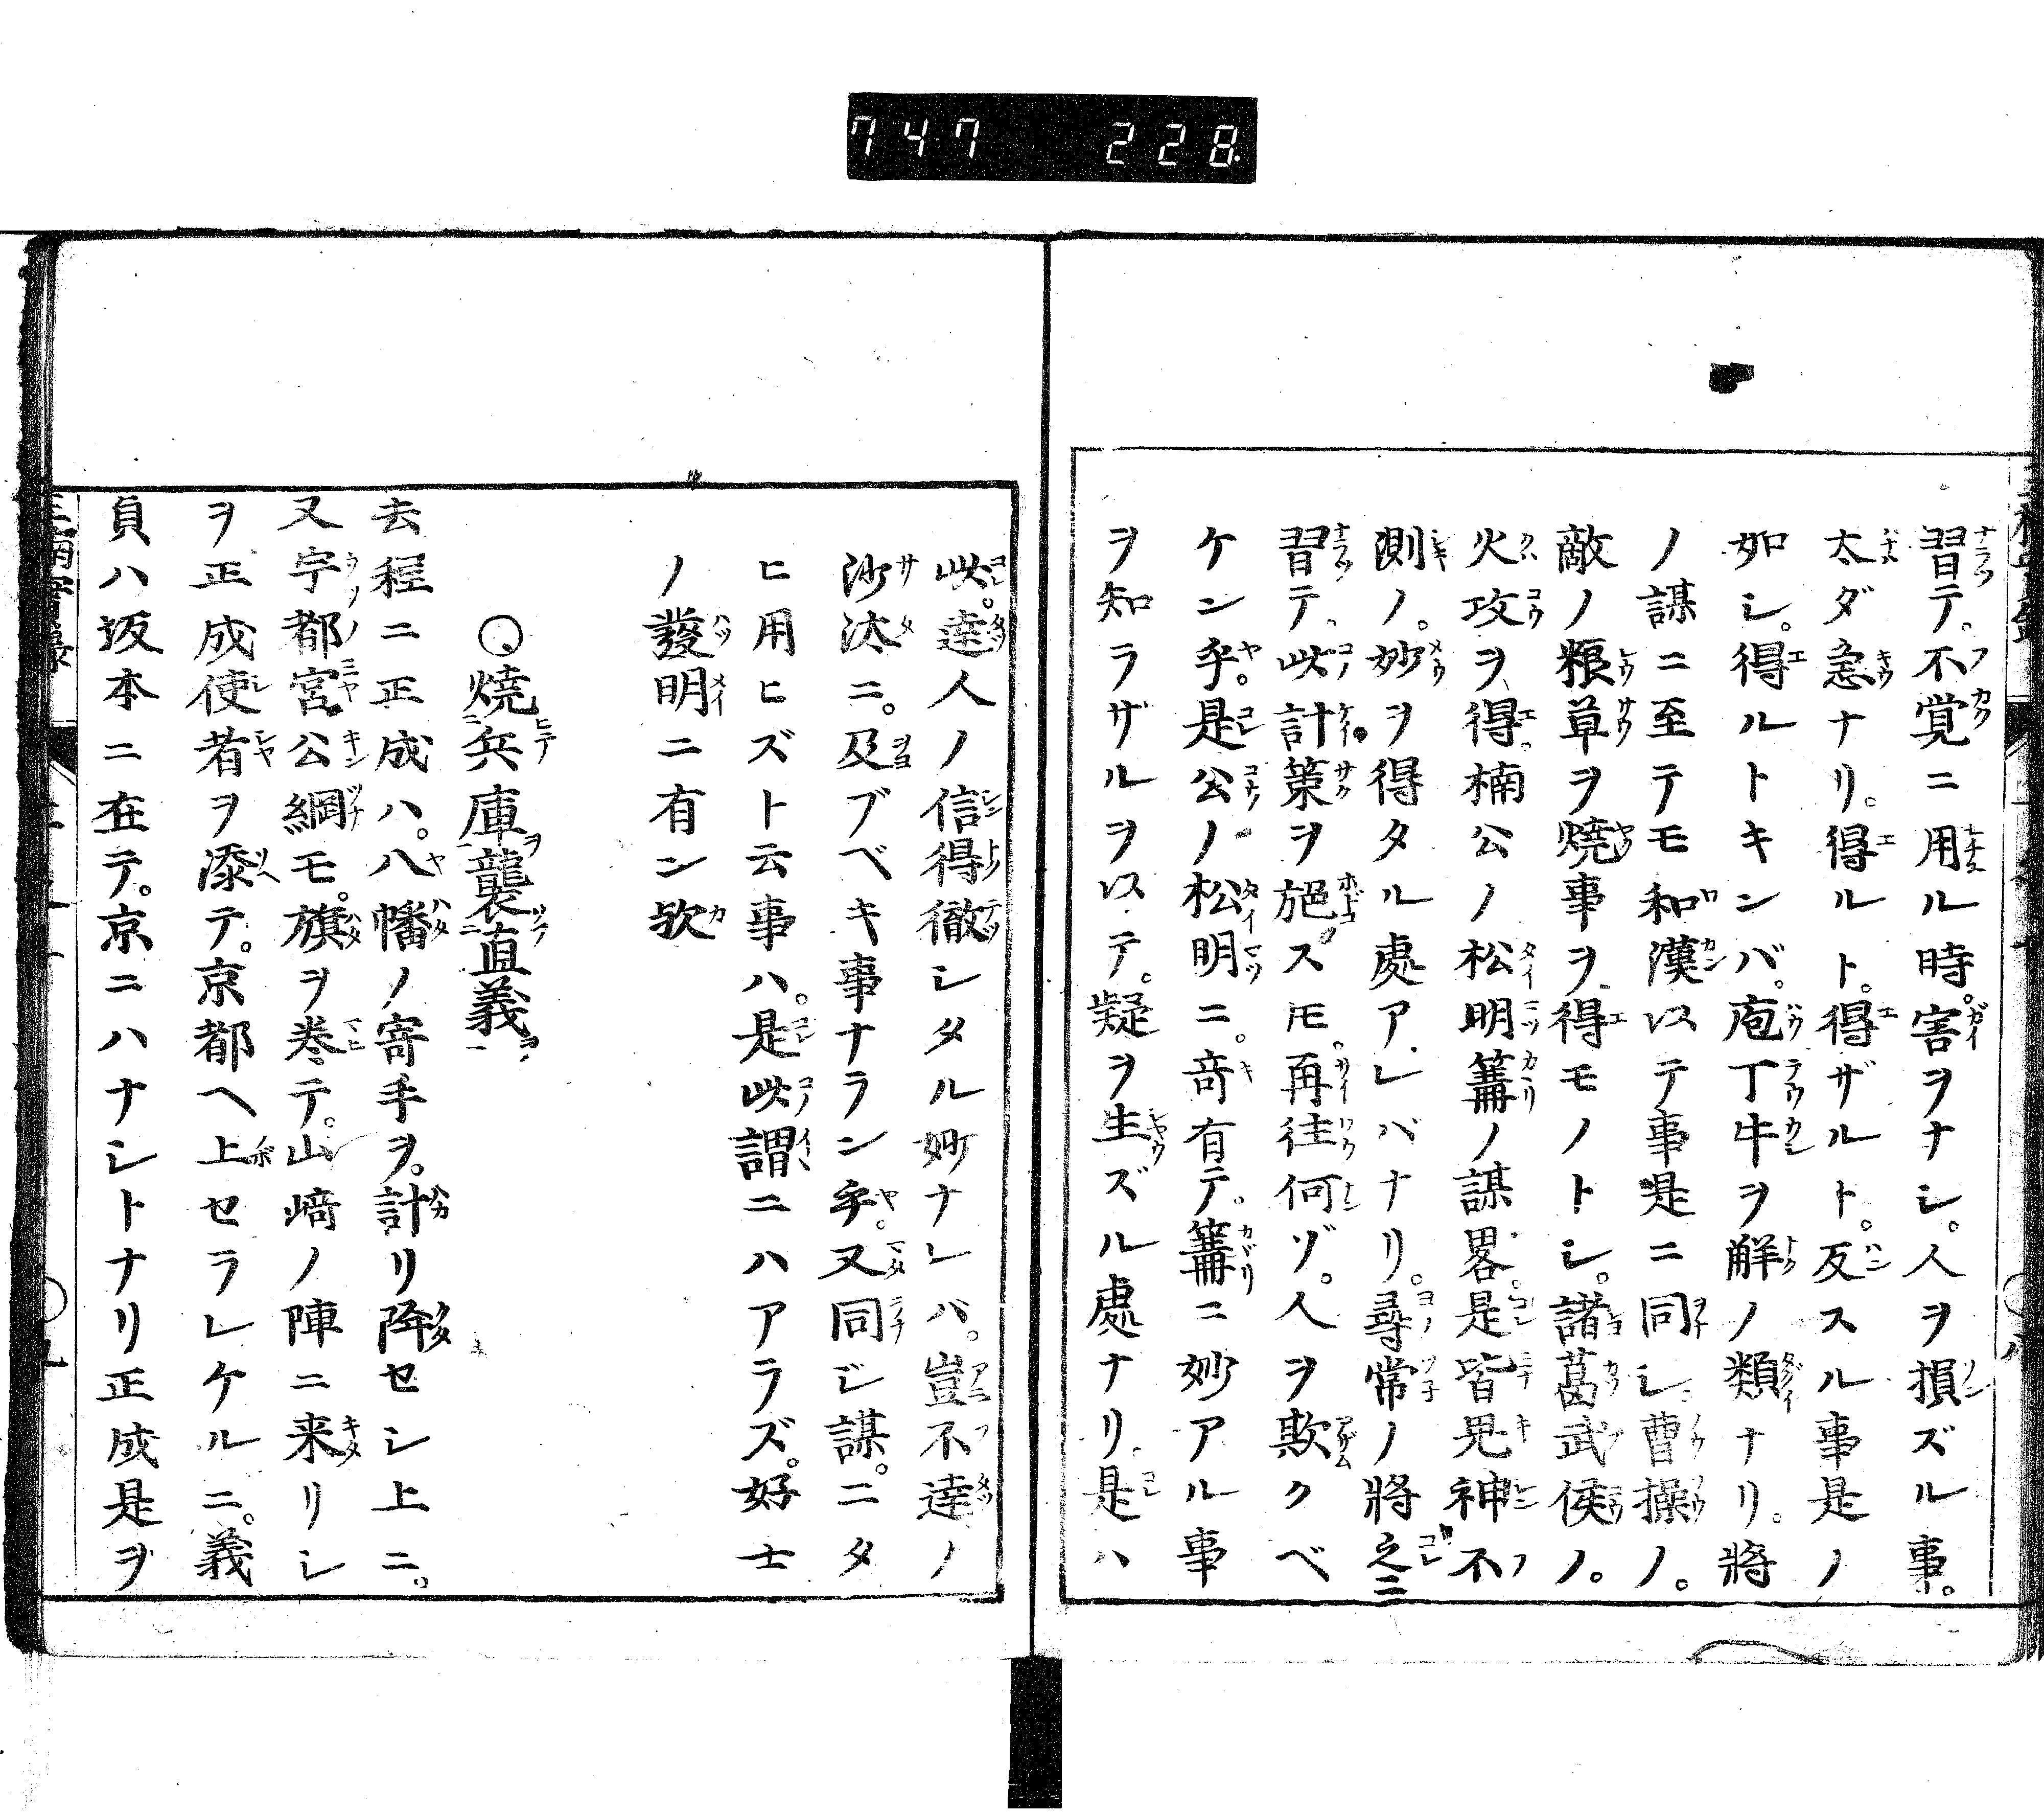 747 228
習テ。不覚ニ用ル時。害ヲナシ。人ヲ損ズル事。
太ダ急ナリ。得ルト。得ザルト。反スル事是ノ
如シ。得ルトキンバ。庖丁牛ヲ解ノ類ナリ。將
ノ謀ニ至テモ和漢以テ事是ニ同シ。曹操ノ。
敵ノ粮草ヲ焼事ヲ得モノトシ。諸葛武侯ノ。
火攻ヲ得。楠公ノ松明篝ノ謀畧。是皆鬼神不
測ノ。妙ヲ得タル處アレバナリ。尋常ノ將之ニ
習テ。此計策ヲ施スモ。再往何ゾ。人ヲ欺クベ
ケン乎。是公ノ松明ニ。竒有テ。篝ニ妙アル事
ヲ知ラザルヲ以テ。疑ヲ生ズル處ナリ。是ハ
此。達人ノ信得徹シタル妙ナレバ。豈不達ノ
沙汰ニ。及ブベキ事ナラン乎。又同ジ謀。ニタ
ヒ用ヒズト云事ハ。是此謂ニハアラズ。好士
ノ發明ニ有ン欤
○焼兵庫襲直義
去程ニ正成ハ。八幡ノ寄手ヲ。計リ降セシ上ニ。
又宇都宮公綱モ。旗ヲ巻テ。山﨑ノ陣ニ来リシ
ヲ正成使者ヲ添テ。京都ヘ上セラレケルニ。義
貞ハ坂本ニ在テ。京ニハナシトナリ正成是ヲ